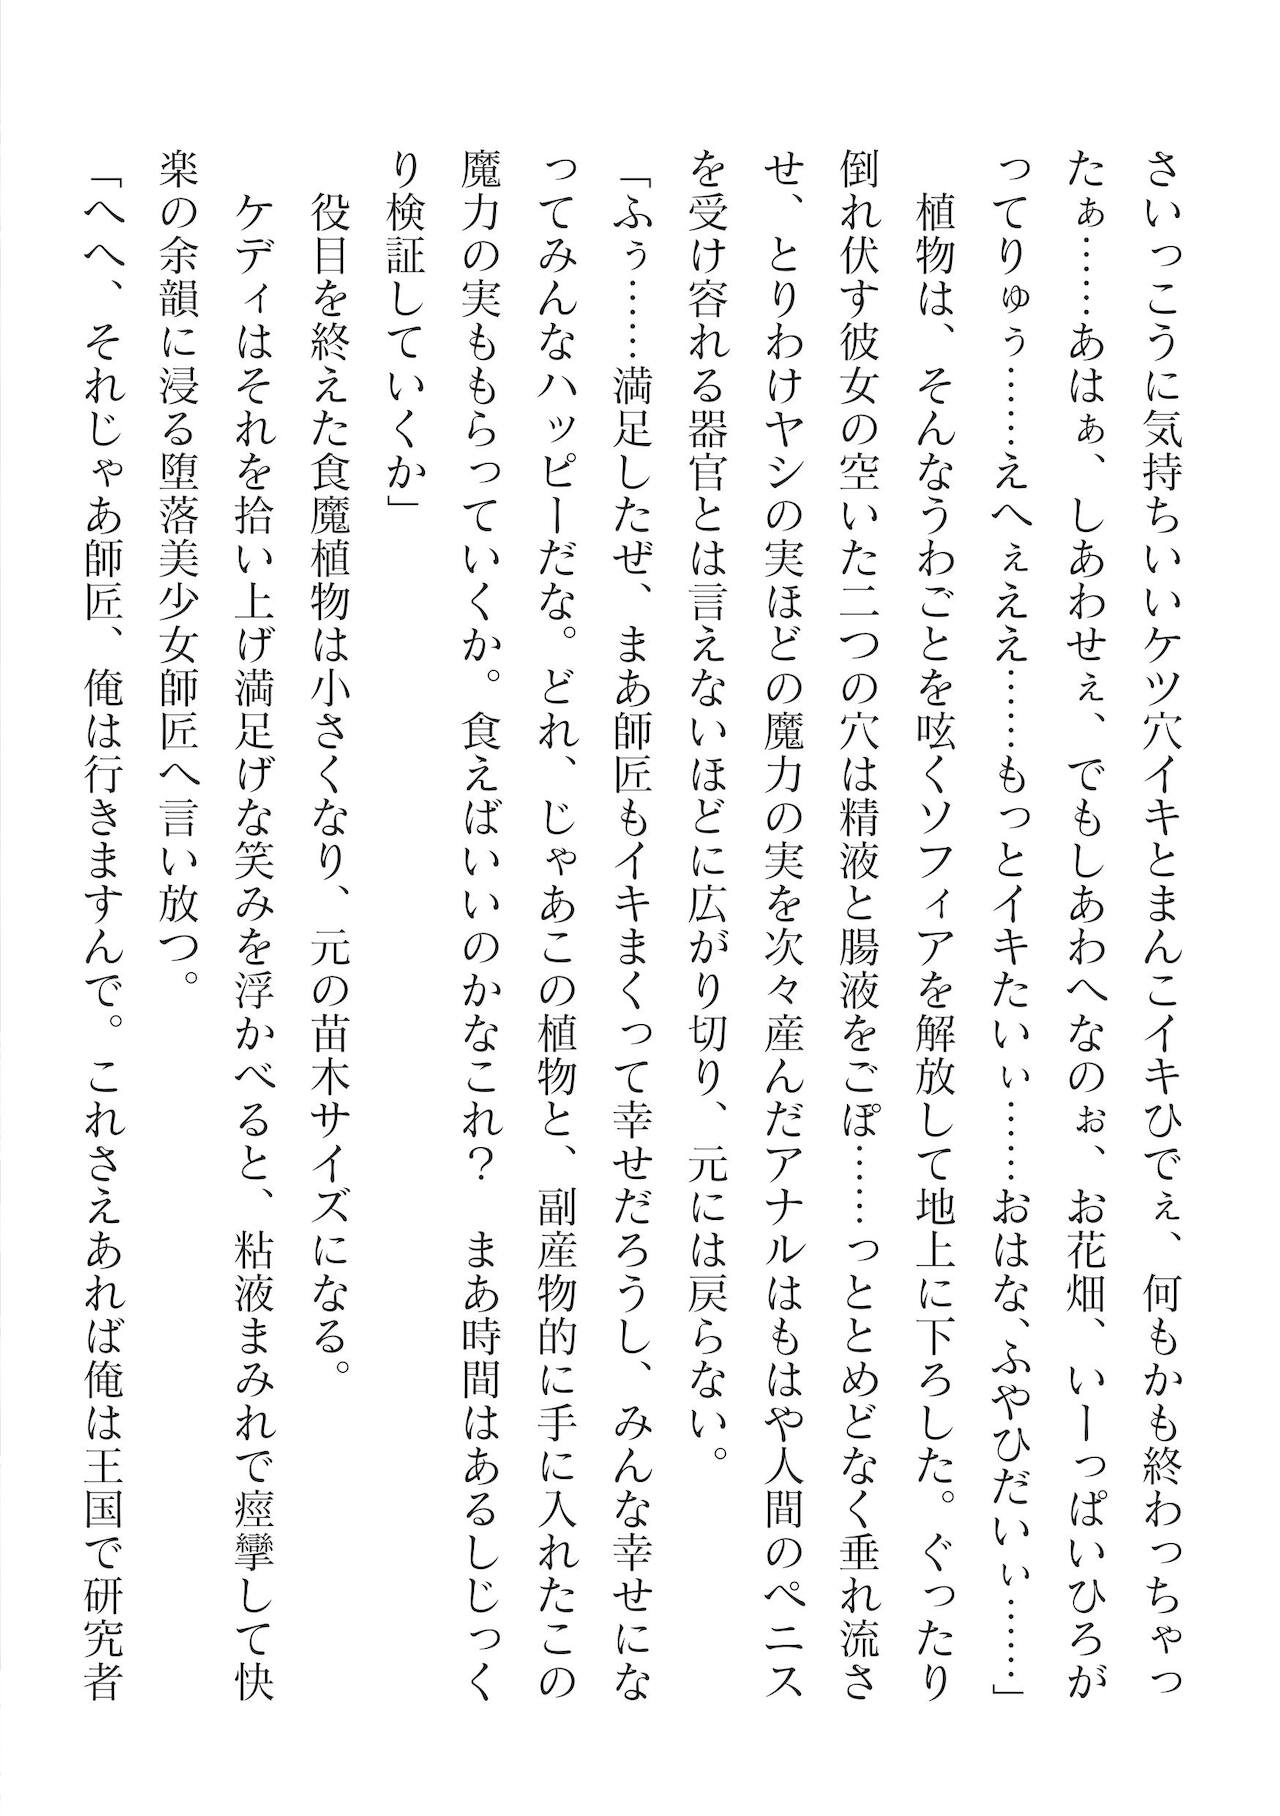 さいっこうに気持ちいいケツ穴イキとまんこイキひでぇ、何もかも終わっちゃっ
たぁ……あはぁ、しあわせぇ、でもしあわへなのぉ、お花畑、いーっぱいひろが
ってりゅぅ……えへぇええ……もっとイキたいぃ……おはな、ふやひだいぃ……」
　植物は、そんなうわごとを呟くソフィアを解放して地上に下ろした。ぐったり
倒れ伏す彼女の空いた二つの穴は精液と腸液をごぽ……っととめどなく垂れ流さ
せ、とりわけヤシの実ほどの魔力の実を次々産んだアナルはもはや人間のペニス
を受け容れる器官とは言えないほどに広がり切り、元には戻らない。
「ふぅ……満足したぜ、まあ師匠もイキまくって幸せだろうし、みんな幸せにな
ってみんなハッピーだな。どれ、じゃあこの植物と、副産物的に手に入れたこの
魔力の実ももらっていくか。食えばいいのかなこれ？　まあ時間はあるしじっく
り検証していくか」
　役目を終えた食魔植物は小さくなり、元の苗木サイズになる。
　ケディはそれを拾い上げ満足げな笑みを浮かべると、粘液まみれで痙攣して快
楽の余韻に浸る堕落美少女師匠へ言い放つ。
「へへ、それじゃあ師匠、俺は行きますんで。これさえあれば俺は王国で研究者